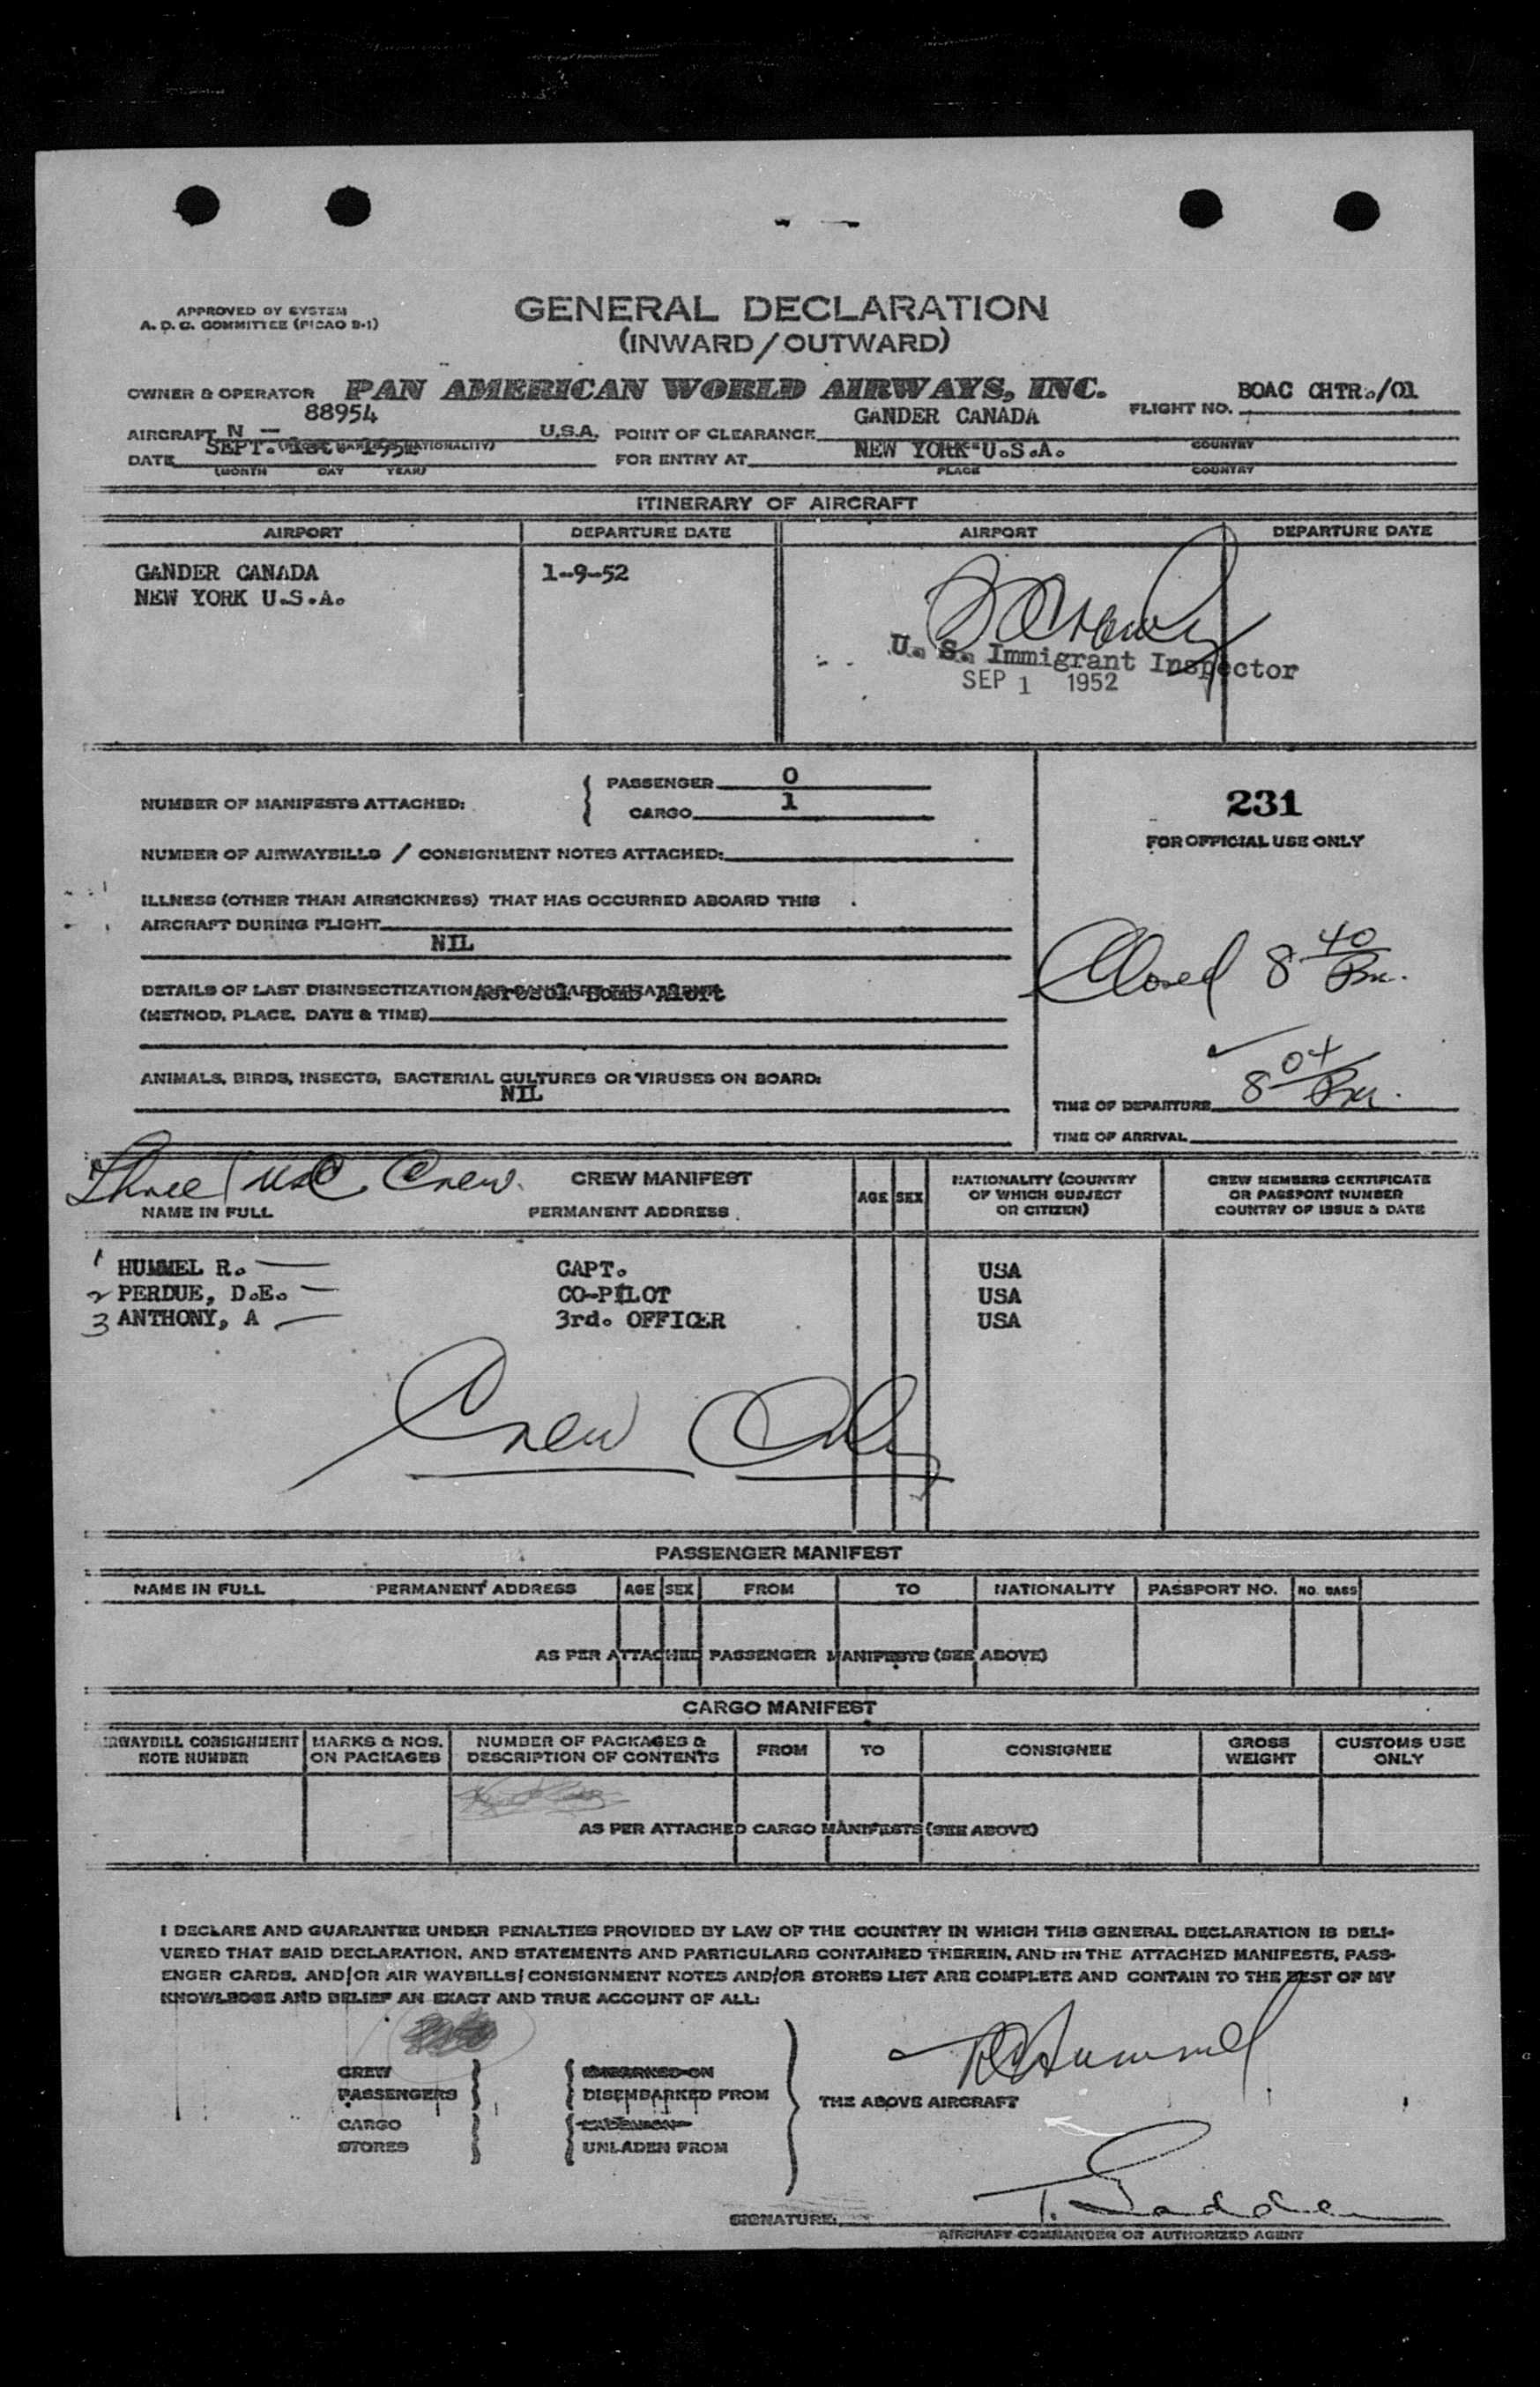 APPROVED BY SYSTEM
A. D. C. COMMITTEE (PICAO B-1)
GENERAL DECLARATION
(INWARD/OUTWARD)
OWNER & OPERATOR PAN AMERICAN WORLD AIRWAYS, INC.
FLIGHT NO. BOAC CHTR./01
AIRCRAFT N - 88954 U.S.A.
POINT OF CLEARANCE GANDER CANADA
COUNTRY
DATE SEPT. 1st. 1952
(MONTH DAY YEAR)
FOR ENTRY AT NEW YORK U.S.A.
PLACE COUNTRY
ITINERARY OF AIRCRAFT
AIRPORT DEPARTURE DATE AIRPORT DEPARTURE DATE
GANDER CANADA 1-9-52
NEW YORK U.S.A.
U. S. Immigrant Inspector
SEP 1 1952
NUMBER OF MANIFESTS ATTACHED:
PASSENGER 0
CARGO 1
231
FOR OFFICIAL USE ONLY
NUMBER OF AIRWAYBILLS / CONSIGNMENT NOTES ATTACHED:
ILLNESS (OTHER THAN AIRSICKNESS) THAT HAS OCCURRED ABOARD THIS
AIRCRAFT DURING FLIGHT
NIL
Closed 8 40 Pm.
DETAILS OF LAST DISINSECTIZATION Aerosol Bomb Aloft
(METHOD, PLACE, DATE & TIME)
ANIMALS, BIRDS, INSECTS, BACTERIAL CULTURES OR VIRUSES ON BOARD:
NIL
TIME OF DEPARTURE 8 04 Pm.
TIME OF ARRIVAL
Three USC Crew.
CREW MANIFEST
NAME IN FULL PERMANENT ADDRESS AGE SEX
NATIONALITY (COUNTRY
OF WHICH SUBJECT
OR CITIZEN)
CREW MEMBERS CERTIFICATE
OR PASSPORT NUMBER
COUNTRY OF ISSUE & DATE
1 HUMMEL R. CAPT. USA
2 PERDUE, D.E. CO-PILOT USA
3 ANTHONY, A 3rd. OFFICER USA
Crew Only
PASSENGER MANIFEST
NAME IN FULL PERMANENT ADDRESS AGE SEX FROM TO NATIONALITY PASSPORT NO. NO. BAGS
AS PER ATTACHED PASSENGER MANIFESTS (SEE ABOVE)
CARGO MANIFEST
AIRWAYBILL CONSIGNMENT
NOTE NUMBER
MARKS & NOS.
ON PACKAGES
NUMBER OF PACKAGES &
DESCRIPTION OF CONTENTS
FROM TO CONSIGNEE
GROSS
WEIGHT
CUSTOMS USE
ONLY
AS PER ATTACHED CARGO MANIFESTS (SEE ABOVE)
I DECLARE AND GUARANTEE UNDER PENALTIES PROVIDED BY LAW OF THE COUNTRY IN WHICH THIS GENERAL DECLARATION IS DELI-
VERED THAT SAID DECLARATION, AND STATEMENTS AND PARTICULARS CONTAINED THEREIN, AND IN THE ATTACHED MANIFESTS, PASS-
ENGER CARDS, AND/OR AIR WAYBILLS/CONSIGNMENT NOTES AND/OR STORES LIST ARE COMPLETE AND CONTAIN TO THE BEST OF MY
KNOWLEDGE AND BELIEF AN EXACT AND TRUE ACCOUNT OF ALL:
R Hummel
CREW EMBARKED ON
PASSENGERS DISEMBARKED FROM
THE ABOVE AIRCRAFT
CARGO
STORES UNLADEN FROM
SIGNATURE:
AIRCRAFT COMMANDER OR AUTHORIZED AGENT